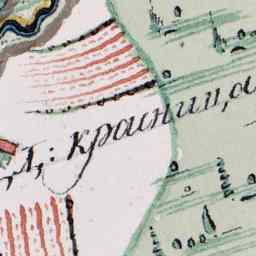 Д,: краница